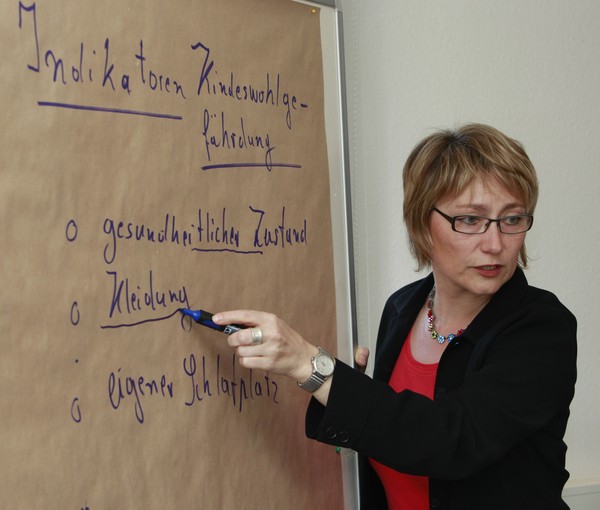 Indikatoren Kindeswohlge-
fährdung
o gesundheitlicher Zustand
o Kleidung
o eigener Schlafplatz